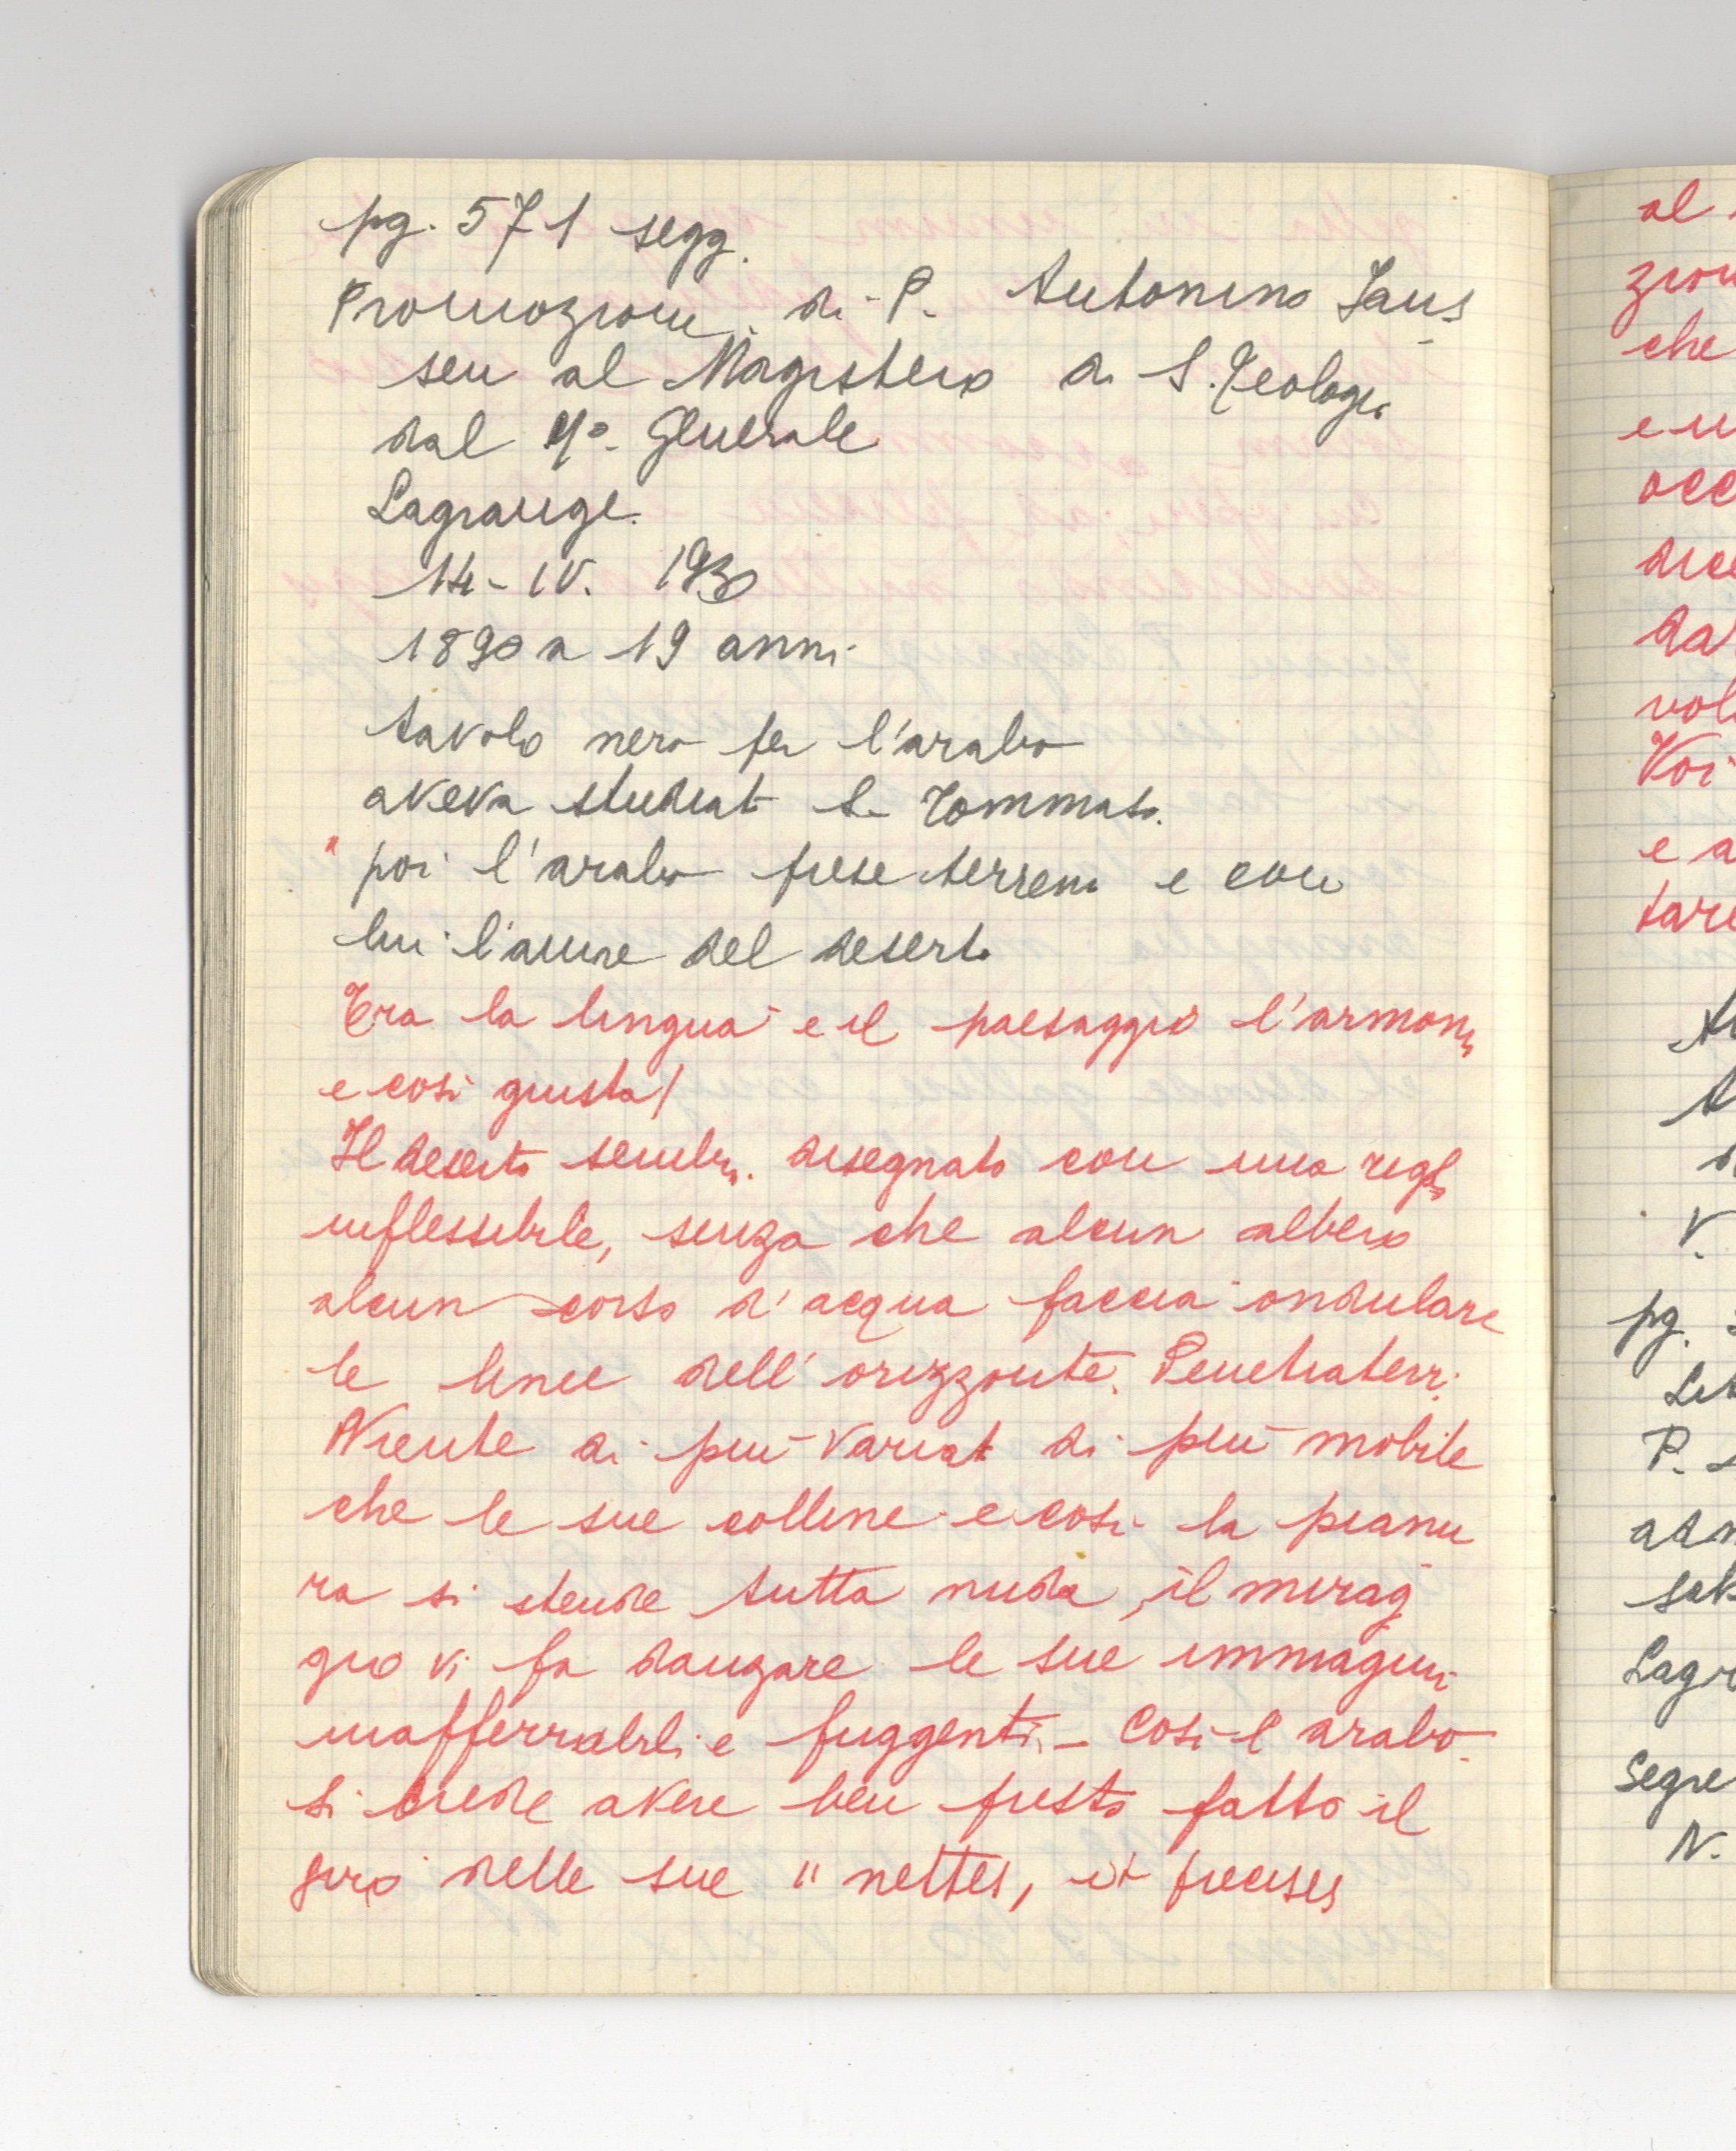 pg. 571 segg.
Promozione di P. Antonino Jaus
sen al Magistero di S. Teologi
dal M°. Generale
Lagrange.
14-IV. 1930
1890 a 19 anni
tavolo nero per l'arabo
aveva studiat S. Tommaso.
" poi l'arabo prese terreno e con
lui l'amore del deserto
Tra la lingua e il paesaggio l'armon
e così giusta!
Il deserto sembra disegnato con una
inflessibile, senza che alcun albero
alcun corso d'acqua faccia ondulare
le linee dell'orizzonte.
Niente di più variat di più mobile
che le sue colline e così la pianu
ra si stende tutta nuda, il mirag
gio vi fa danzare le sue immagini
inafferrabili e fuggenti - Così l arabo
si crede avere ben presto fatto il
giro delle sue " nettes, et precises
al
che
e
occ
da
vol
Voi
e a
tare
V.
pg.
P.
Lagr
Segre
N.